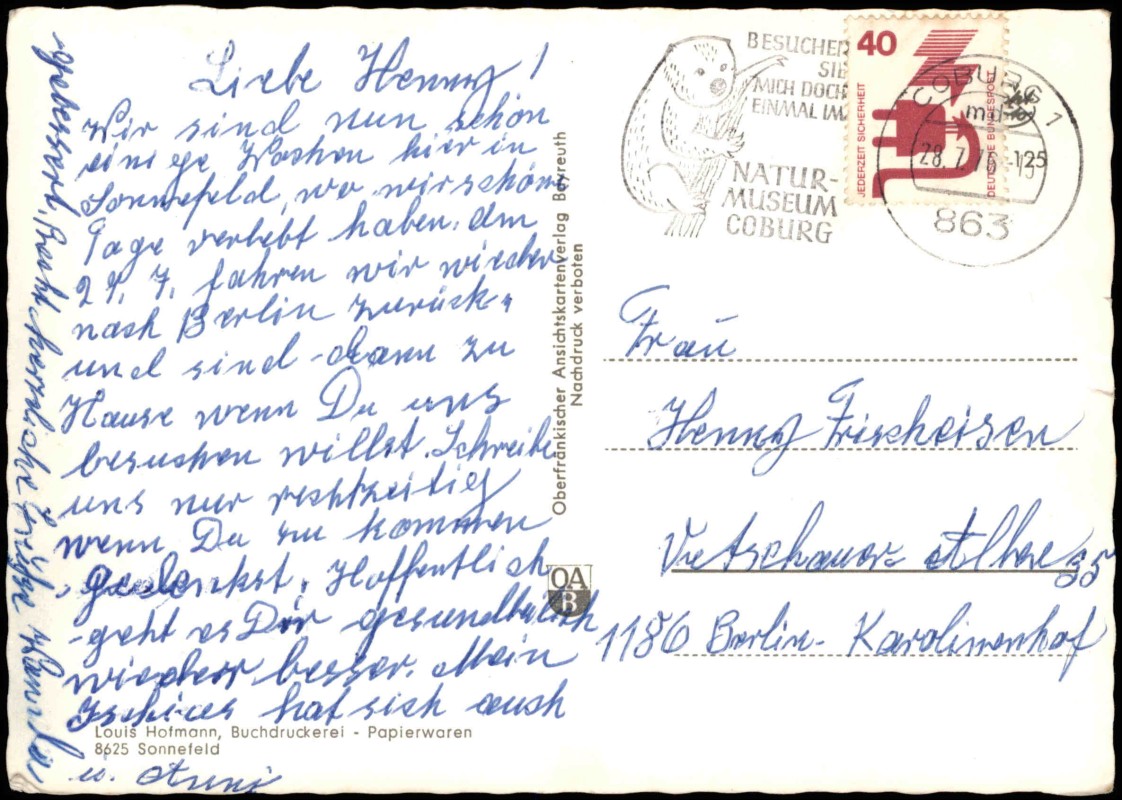 Liebe Henny!
Wir sind nun schon
einige Wochen hier in
Sonnefeld, wo wir schöne
Tage verlebt haben. Am
29. 7. fahren wir wieder
nach Berlin zurück
und sind dann zu
Hause wenn Du uns
besuchen willst. Schreibe
uns nur rechtzeitig
wenn Du zu kommen
gedenkst. Hoffentlich
geht es Dir gesundheitlich
wieder besser. Mein
Ischias hat sich auch
gebessert. Recht herzliche Grüße
u. Anni
Louis Hofmann, Buchdruckerei - Papierwaren
8625 Sonnefeld
Oberfränkischer Ansichtskartenverlag Bayreuth
Nachdruck verboten
OA
B
BESUCHEN
SIE
MICH DOCH
EINMAL IM
NATUR-
MUSEUM
COBURG
40
JEDERZEIT SICHERHEIT
DEUTSCHE BUNDESPOST
COBURG 1
md
28.7.
863
Frau
Henny Frischeisen
Vetschauer Allee 35
1186 Berlin-Karolinenhof